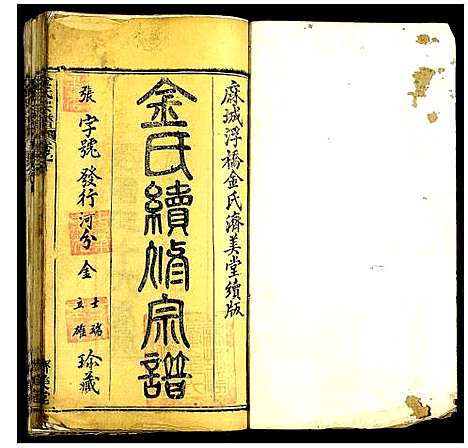 麻城浮橋金氏濟美堂續版
金氏續修宗譜
張字號發行河分金士瑞立雄珍藏